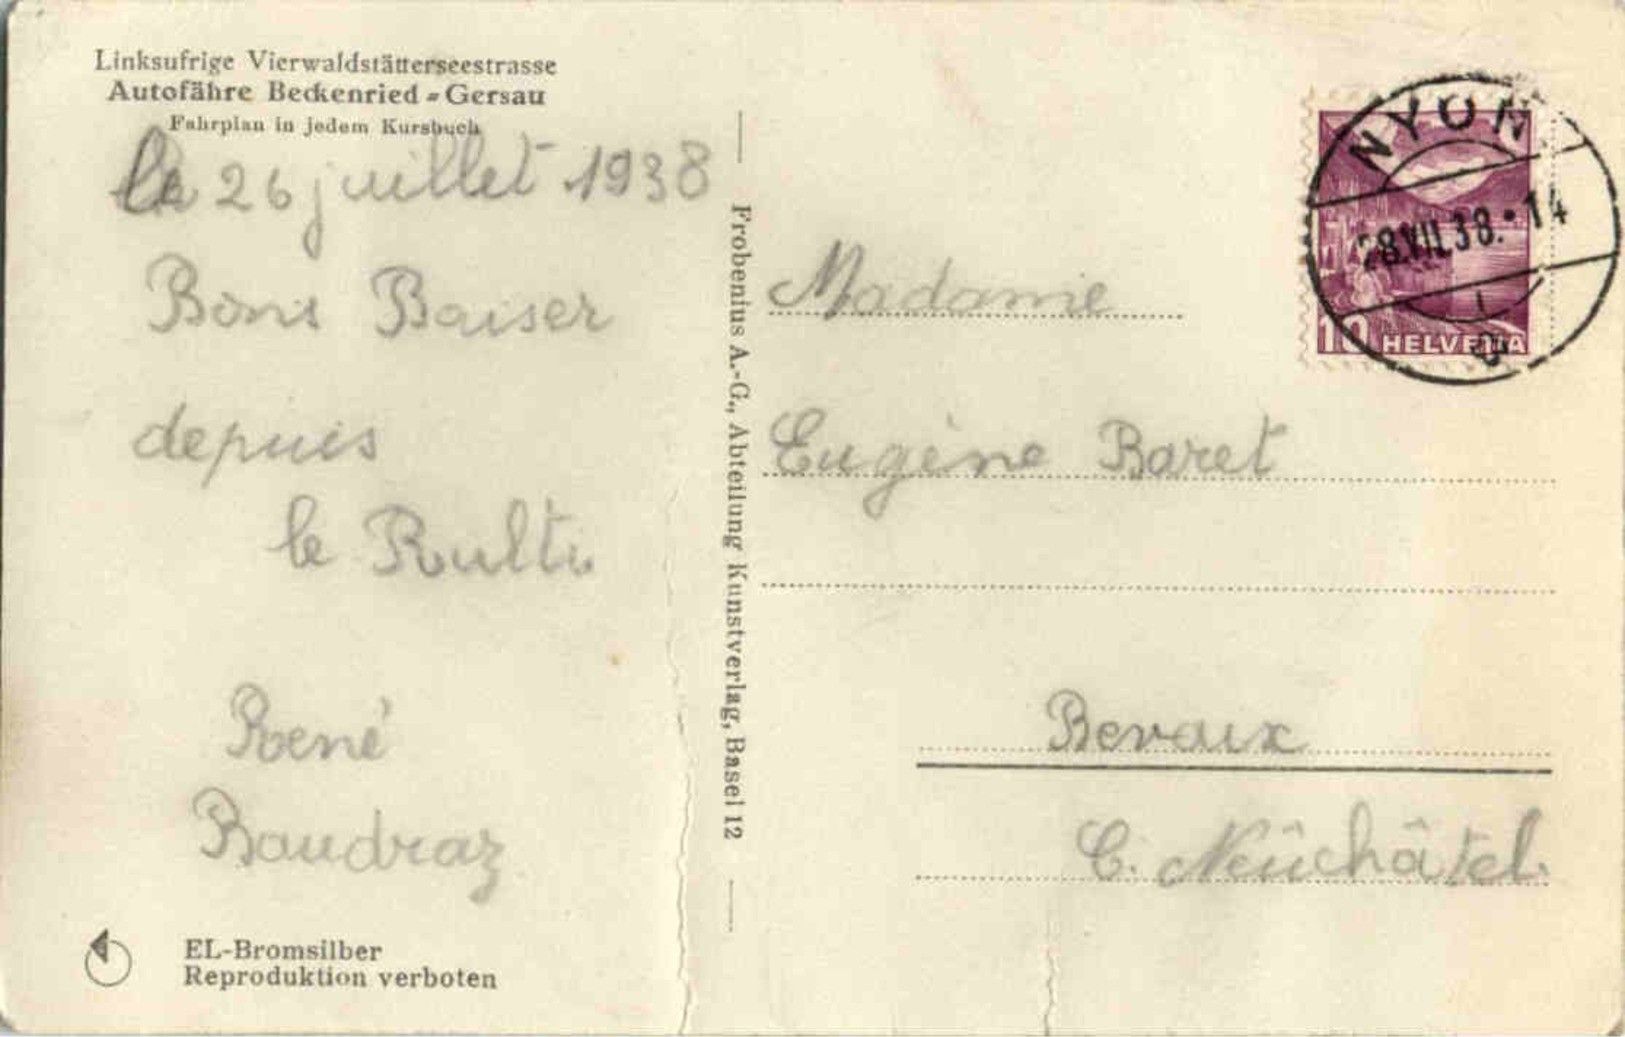 Linksufrige Vierwaldstätterseestrasse
Autofähre Beckenried-Gersau
Fahrplan in jedem Kursbuch
le 26 juillet 1938
Bons Baiser
depuis
le Rultu
René
Baudraz
EL-Bromsilber
Reproduktion verboten
Frobenius A.-G., Abteilung Kunstverlag, Basel 12
NYON
28.VII.38.•14
10 HELVETIA
Madame
Eugène Baret
Bevaix
C. Neûchâtel.